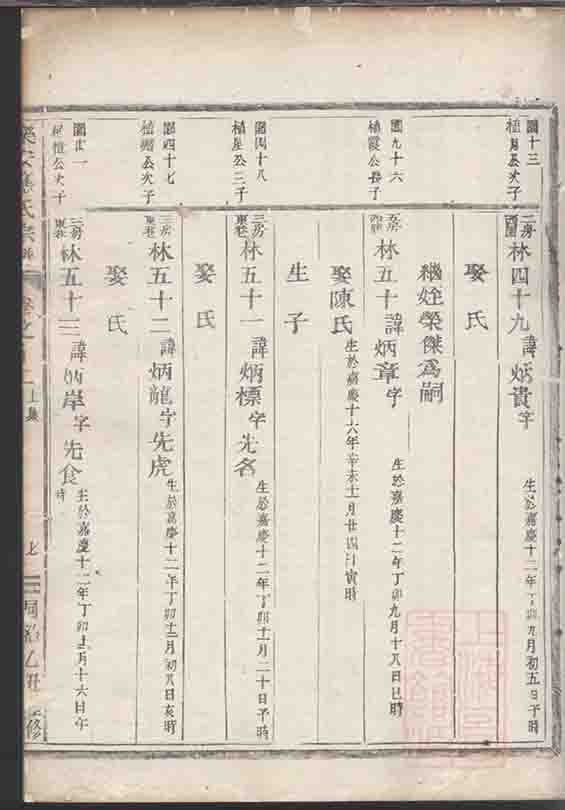 國十三
公次子
二房
林四十九諱炳貴字
生於嘉慶十二年丁卯九月初五日子時
娶氏
繼姪榮傑為嗣
國九十六
植霞公長子
五房
林五十諱炳章字
生於嘉慶十二年丁卯九月十八日巳時
娶陳氏
生於嘉慶十六年辛未十月廿四日寅時
生子
國四十八
植星公三子
三房
東巷
林五十一諱炳標字先名
生於嘉慶十二年丁卯十月二十日子時
娶氏
國四十七
公次子
三房
東巷
林五十二諱炳龍字先虎
生於嘉慶十二年丁卯十二月初八日亥時
娶氏
國廿一
公次子
三房
東巷
林五十三諱炳岸字先食
生於嘉慶十二年丁卯十二月十六日午
時
樂安 氏宗譜
卷之
上集
同治乙丑 修